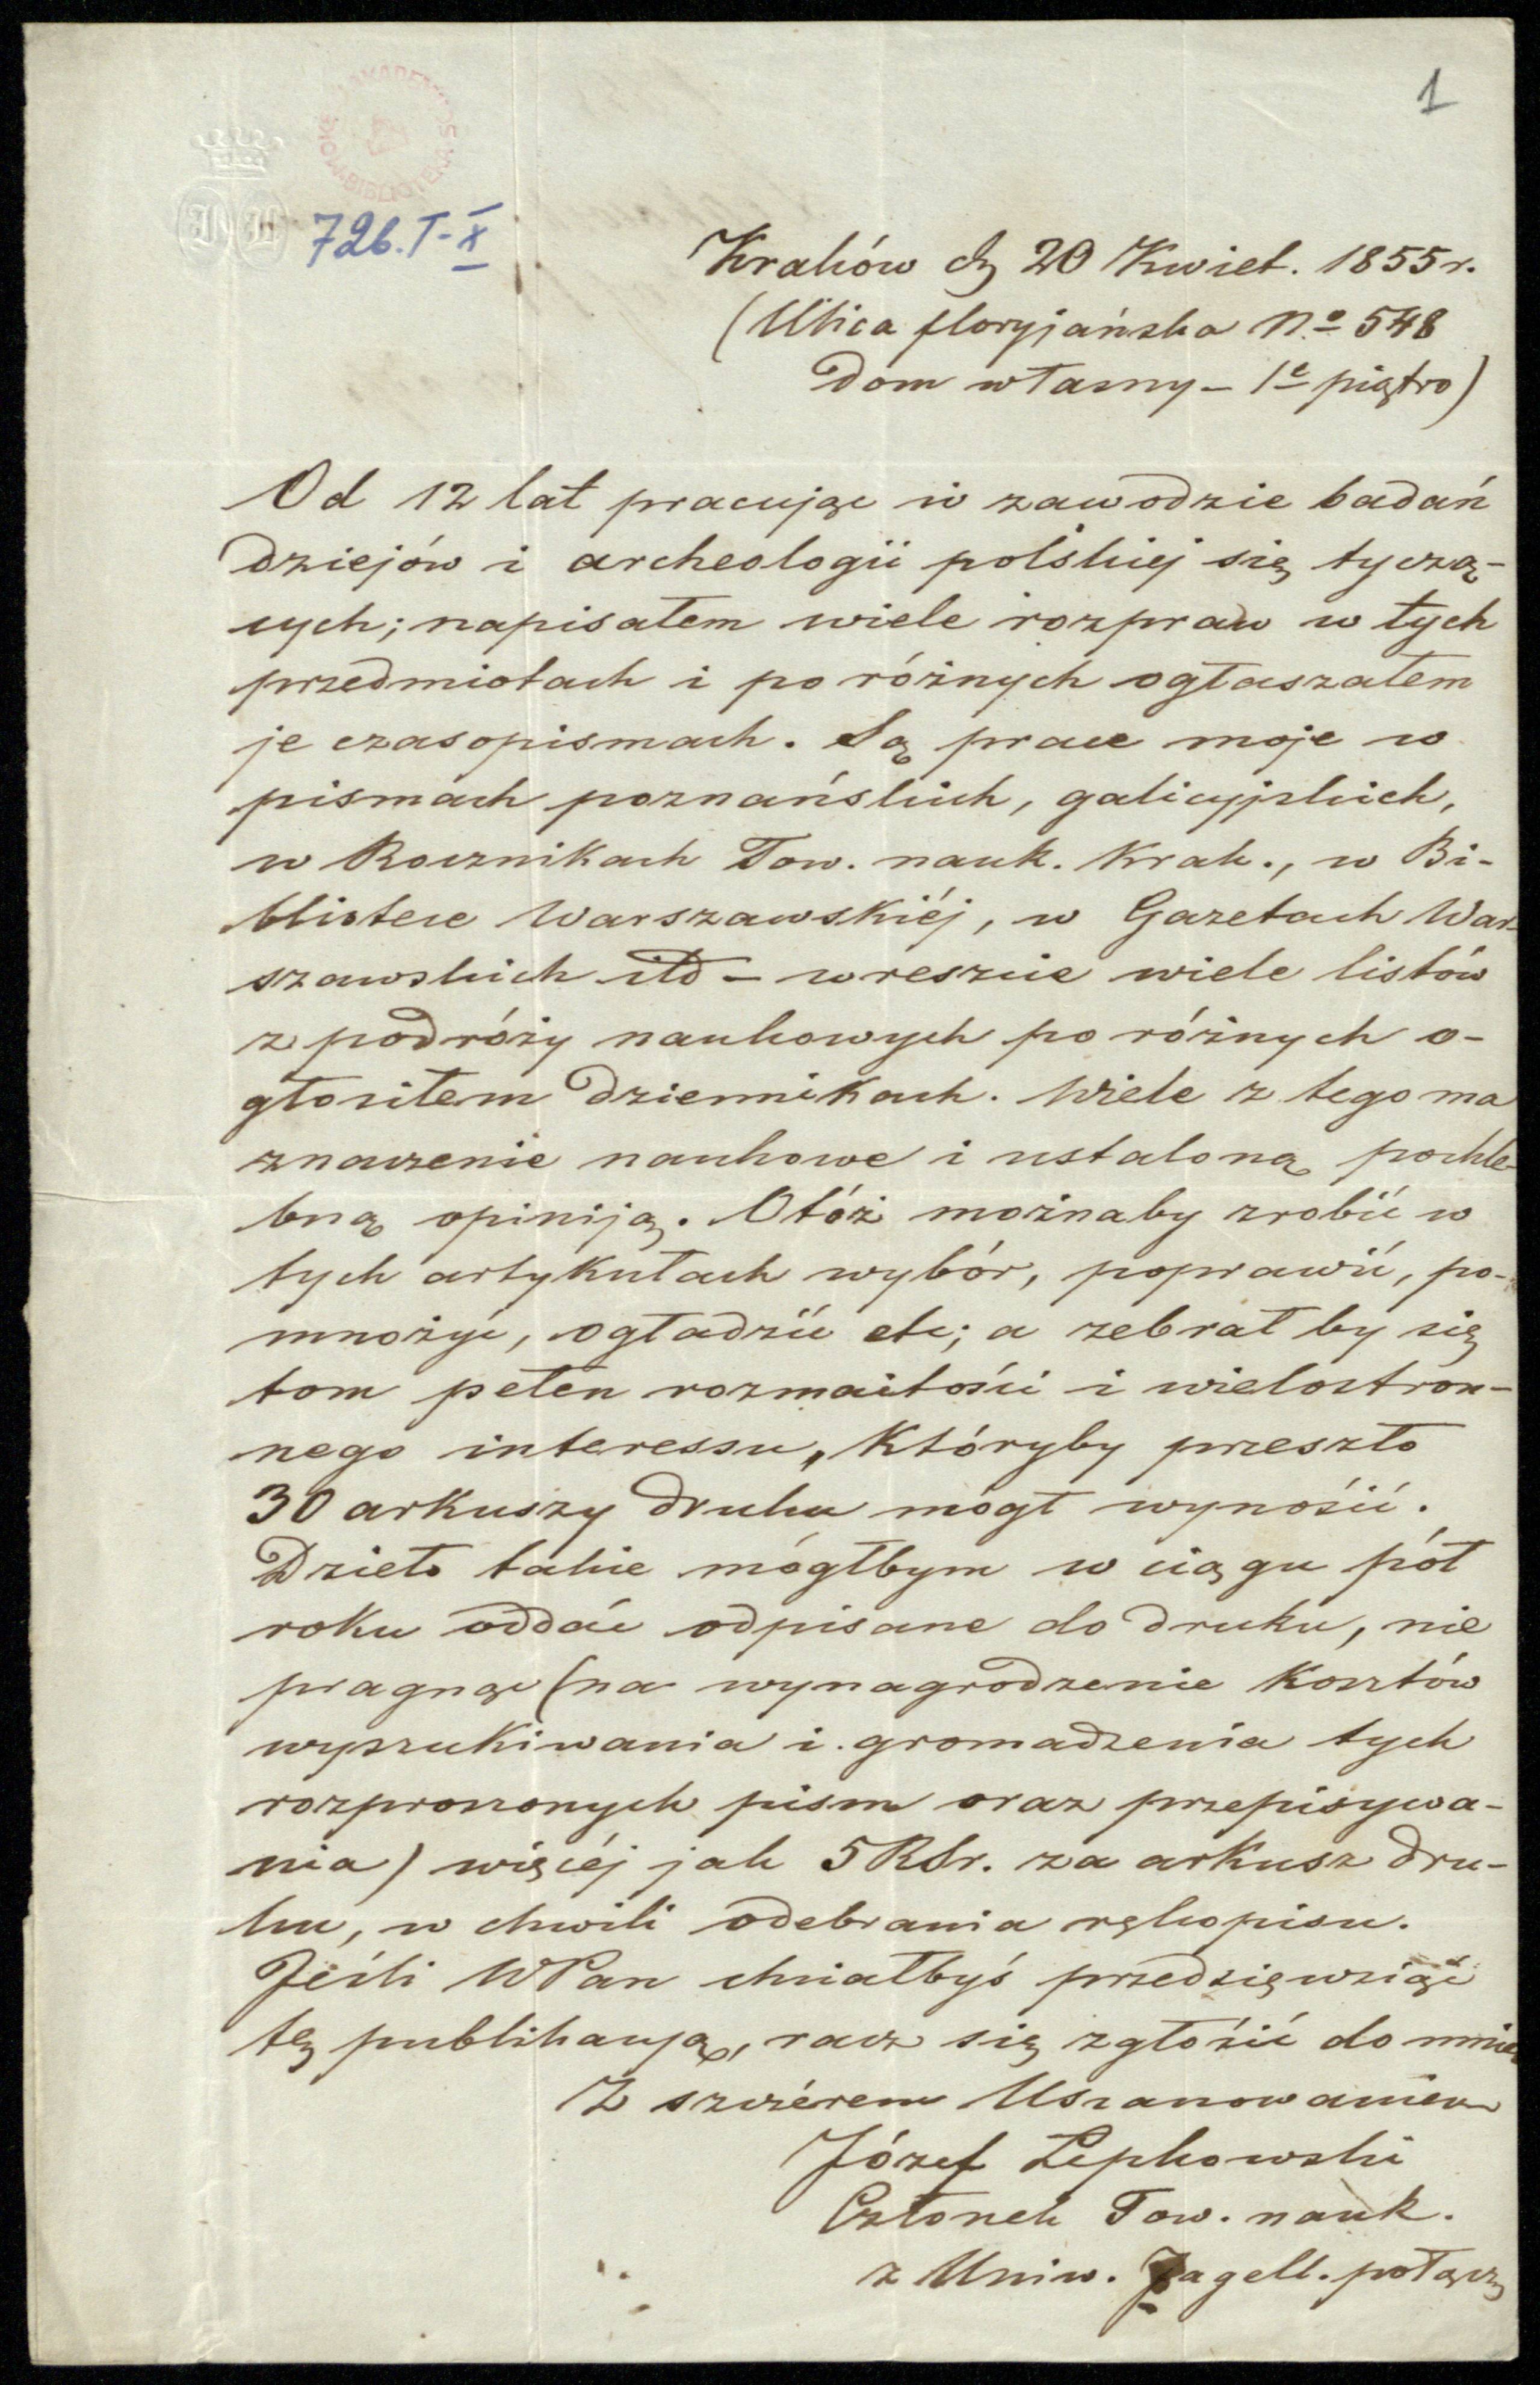 1
726. T-X
Kraków d. 20 Kwiet. 1855 r.
(Ulica floryjańska No 548
Dom własny – 1e piętro)
Od 12 lat pracując w zawodzie badań
dziejów i archeologii polskiej się tyczą-
cych; napisałem wiele rozpraw w tych
przedmiotach i po różnych ogłaszałem
je czasopismach. Są prace moje w
pismach poznańskich, galicyjskich,
w Rocznikach Tow. nauk. Krak., w Bi-
bliotece Warszawskiéj, w Gazetach War-
szawskich itd – wreszcie wiele listów
z podróży naukowych po różnych o-
głosiłem dziennikach. Wiele z tego ma
znaczenie naukowe i ustaloną pochle-
bną opiniją. Otóż możnaby zrobić w
tych artykułach wybór, poprawić, po-
mnożyć, ogładzić etc; a zebrał by się
tom pełen rozmaitości i wielostron-
nego interessu, któryby przeszło
30 arkuszy druku mógł wynosić.
Dzieło takie mógłbym w ciągu pół
roku oddać odpisane do druku, nie
pragnąc (na wynagrodzenie kosztów
wyszukiwania i gromadzenia tych
rozproszonych pism oraz przepisywa-
nia) więcéj jak 5 RSr. za arkusz dru-
ku, w chwili odebrania rękopisu.
Jeśli WPan chciałbyś przedsięwziąć
tę publikacyją, racz się zgłosić do mnie
Z szczérem Uszanowaniem
Józef Łepkowski
Członek Tow. nauk.
z Uniw. Jagell. połącz.